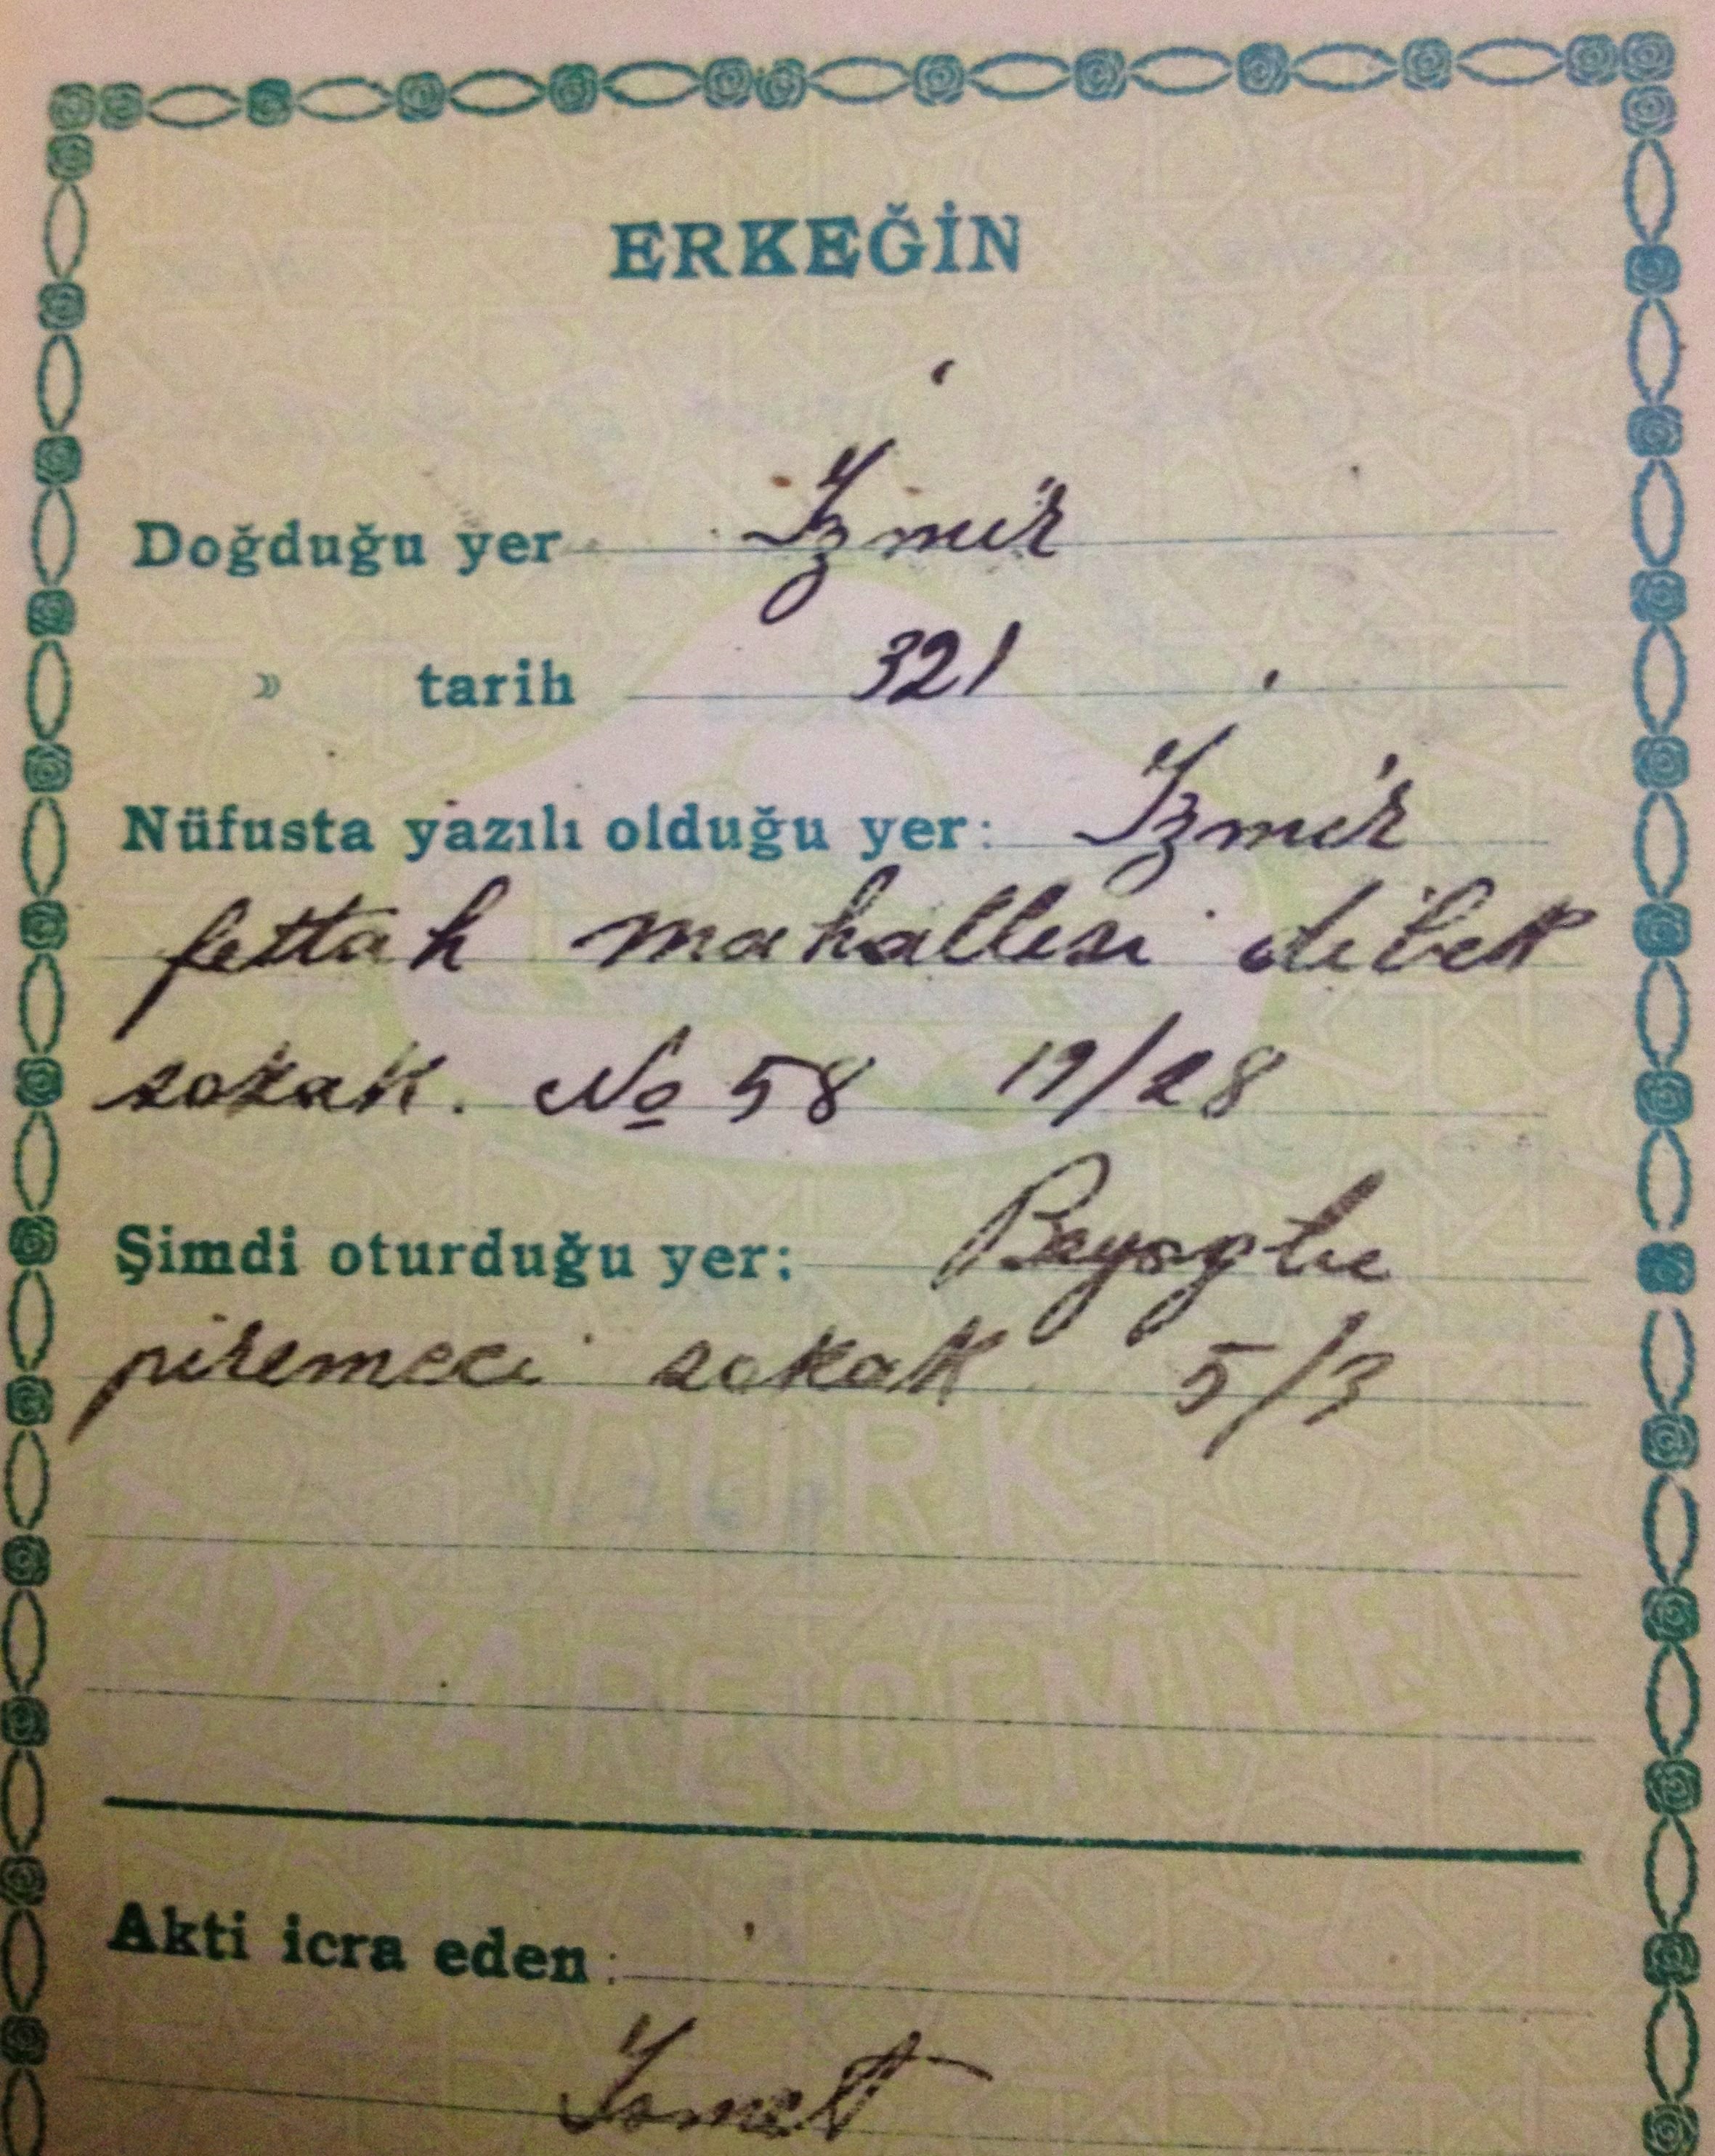 ERKEĞİN
Doğduğu yer İzmir
» tarih 321
Nüfusta yazılı olduğu yer: İzmir
fettah mahallesi dibek
sokak. No 58 19/28
Şimdi oturduğu yer: Beyoglu
piremeci sokak 5/3
TÜRK
TAYYARE CEMİYETİ
Akti icra eden:
İsmet